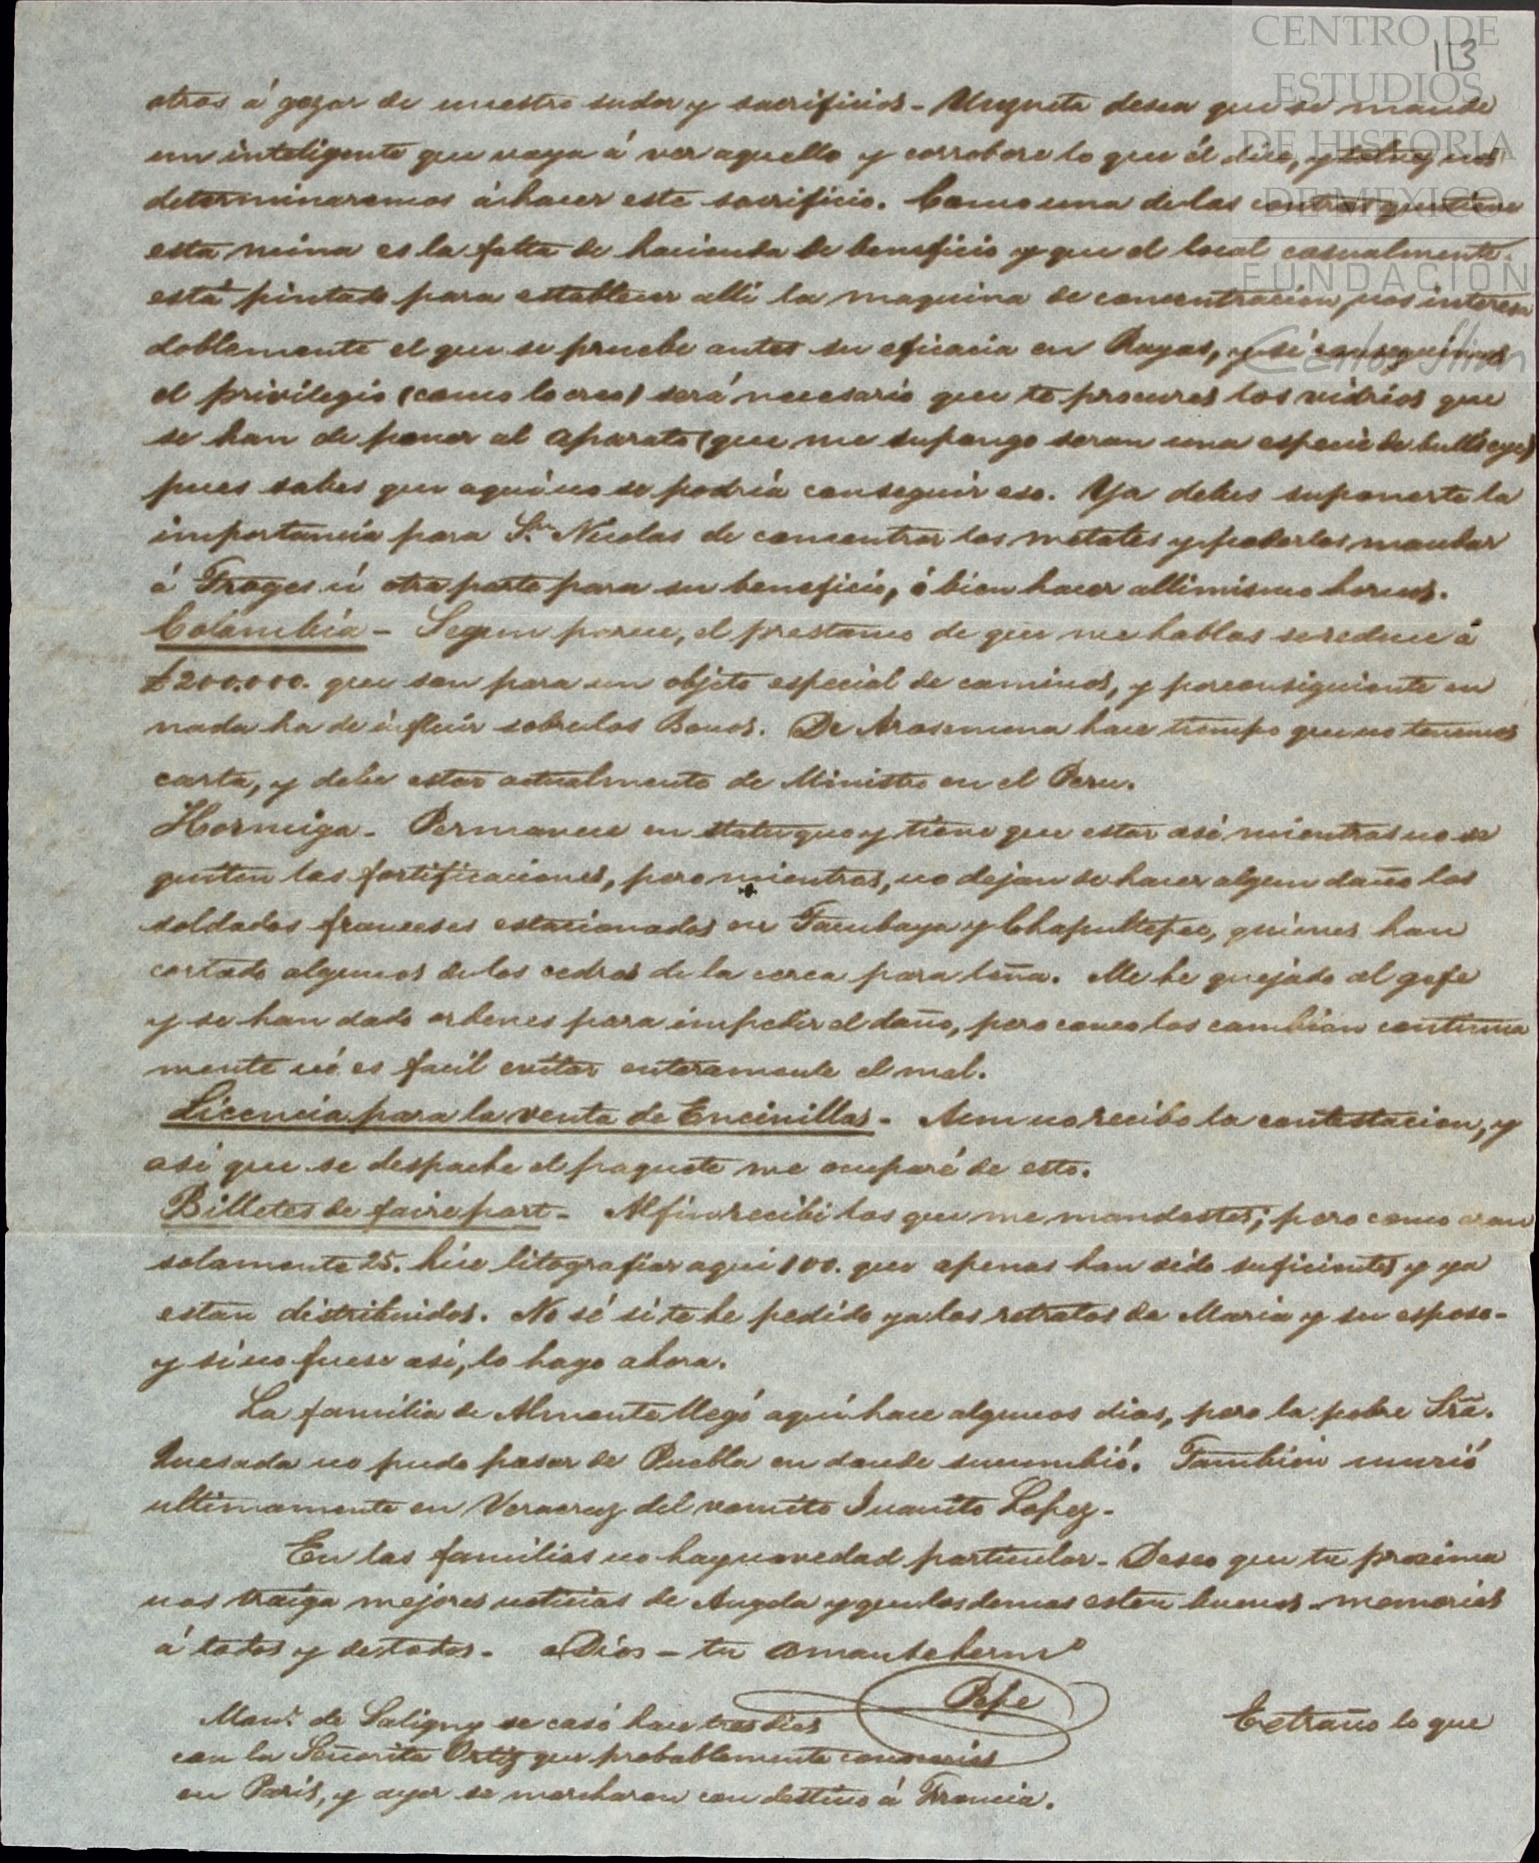 CENTRO DE
ESTUDIOS
DE HISTORIA
DE MEXICO
FUNDACIÓN
Carlos Slim
113
otros á gozar de nuestro sudor y sacrificios - Unzueta desea que se mande
un inteligente que vaya á ver aquello y corrobore lo que él dice, y talvez nos
determinaremos á hacer este sacrificio. Como una de las contras que tiene
esta mina es la falta de hacienda de beneficio y que el local casualmente
está pintado para establecer alli la maquina de concentracion, nos interesa
doblemente el que se pruebe antes su eficacia en Rayas, y si conseguimos
el privilegio (como lo creo) será necesario que te procures los vidrios que
se han de poner al aparato (que me supongo seran una especie de bull's eyes)
pues sabes que aqui no se podria conseguir eso. Ya debes suponerte la
importancia para Sn. Nicolas de concentrar los metales y poderlos mandar
á Trages ú otra parte para su beneficio, ó bien hacer alli mismo hornos.
Colombia - Segun parece, el prestamo de que me hablas se reduce á
£200.000. que son para un objeto especial de caminos, y por consiguiente en
nada ha de influir sobre los Bonos. De Arosemena hace tiempo que no tenemos
carta, y debe estar actualmente de Ministro en el Peru.
Hormiga - Permanece en statu quo y tiene que estar asi mientras no se
quiten las fortificaciones, pero mientras, no dejan de hacer algun daño los
soldados franceses estacionados en Tacubaya y Chapultepec, quienes han
cortado algunos de los cedros de la cerca para leña. Me he quejado al gefe
y se han dado ordenes para impedir el daño, pero como los cambian continua
mente no es facil evitar enteramente el mal.
Licencia para la venta de Encinillas - Aun no recibo la contestacion, y
asi que se despache el paquete me ocuparé de esto.
Billetes de faire part - Al fin recibi los que me mandastes; pero como eran
solamente 25. hice litografiar aqui 100. que apenas han sido suficientes y ya
estan distribuidos. No sé si te he pedido ya los retratos de Maria y su esposo -
y si no fuese asi, lo hago ahora.
La familia de Almonte llegó aqui hace algunos dias, pero la pobre Sra.
Quesada no pudo pasar de Puebla en donde sucumbió. Tambien murió
ultimamente en Veracruz del vomito Juanito Lopez -
En las familias no hay novedad particular - Deseo que tu proxima
nos traiga mejores noticias de Angela y que los demas esten buenos - memorias
á todos y de todos - a Dios - tu amante hermo
Pepe
Monr. de Saligny se casó hace tres dias
con la Señorita Ortiz que probablemente conocerias
en Paris, y ayer se marcharon con destino á Francia.
Extraño lo que